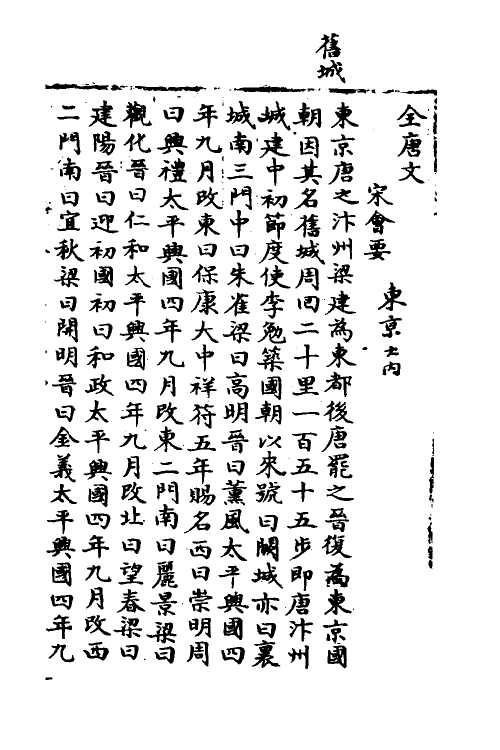 舊城
全唐文
宋會要
東京大内
東京唐之汴州梁建為東都後唐罷之晉復為東京國
朝因其名舊城周回二十里一百五十五步即唐汴州
城建中初節度使李勉築國朝以來號曰闕城亦曰裏
城南三門中曰朱雀梁曰高明晉曰薰風太平興國四
年九月改東曰保康大中祥符五年賜名西曰崇明周
曰興禮太平興國四年九月改東二門南曰麗景梁曰
觀化晉曰仁和太平興國四年九月改北曰望春梁曰
建陽晉曰迎初國初曰和政太平興國四年九月改西
二門南曰宜秋梁曰開明晉曰金義太平興國四年九